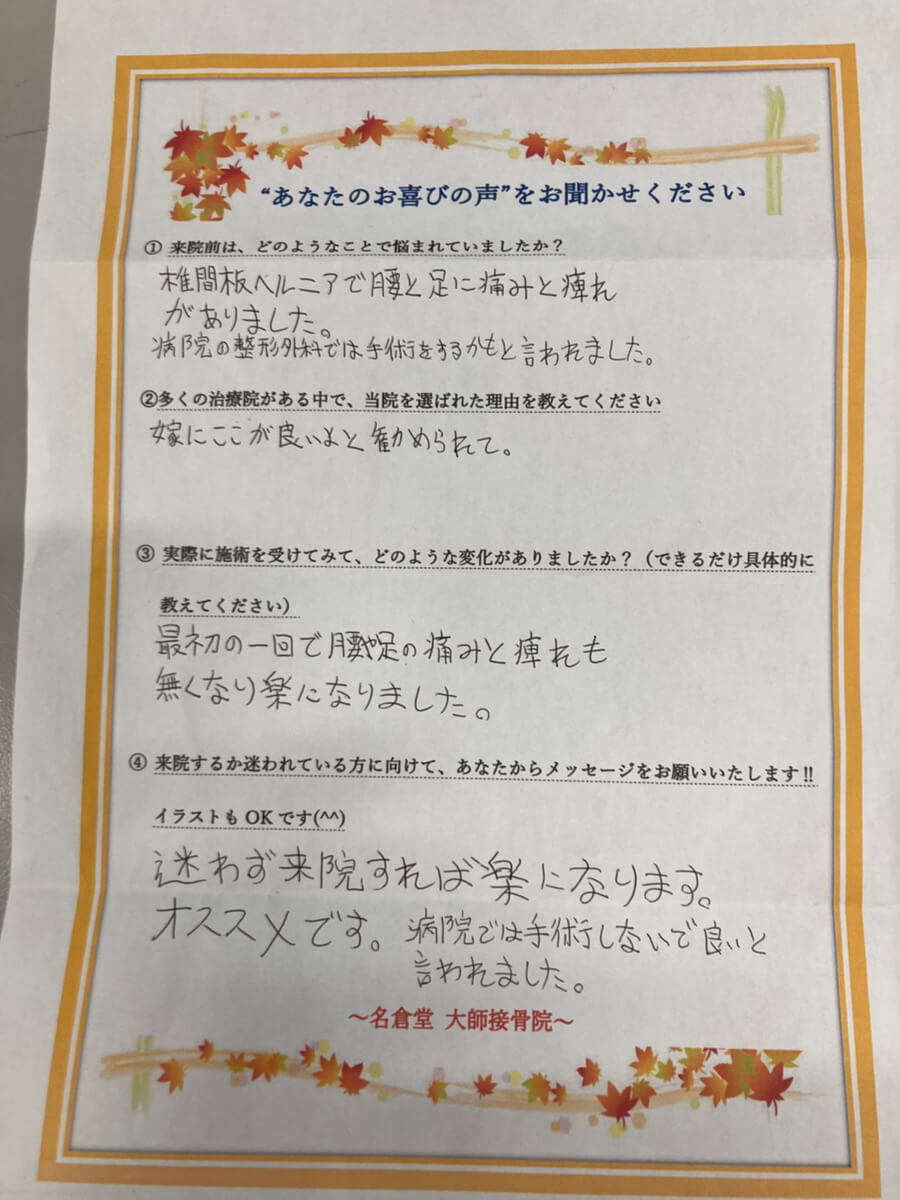 “あなたのお喜びの声”をお聞かせください
① 来院前は、どのようなことで悩まれていましたか？
椎間板ヘルニアで腰と足に痛みと痺れ
がありました。
病院の整形外科では手術をするかもと言われました。
②多くの治療院がある中で、当院を選ばれた理由を教えてください
嫁にここが良いよと勧められて。
③ 実際に施術を受けてみて、どのような変化がありましたか？（できるだけ具体的に
教えてください）
最初の一回で腰や足の痛みと痺れも
無くなり楽になりました。
④ 来院するか迷われている方に向けて、あなたからメッセージをお願いいたします!!
イラストも OK です(^^)
迷わず来院すれば楽になります。
オススメです。病院では手術しないで良いと
言われました。
～名倉堂 大師接骨院～